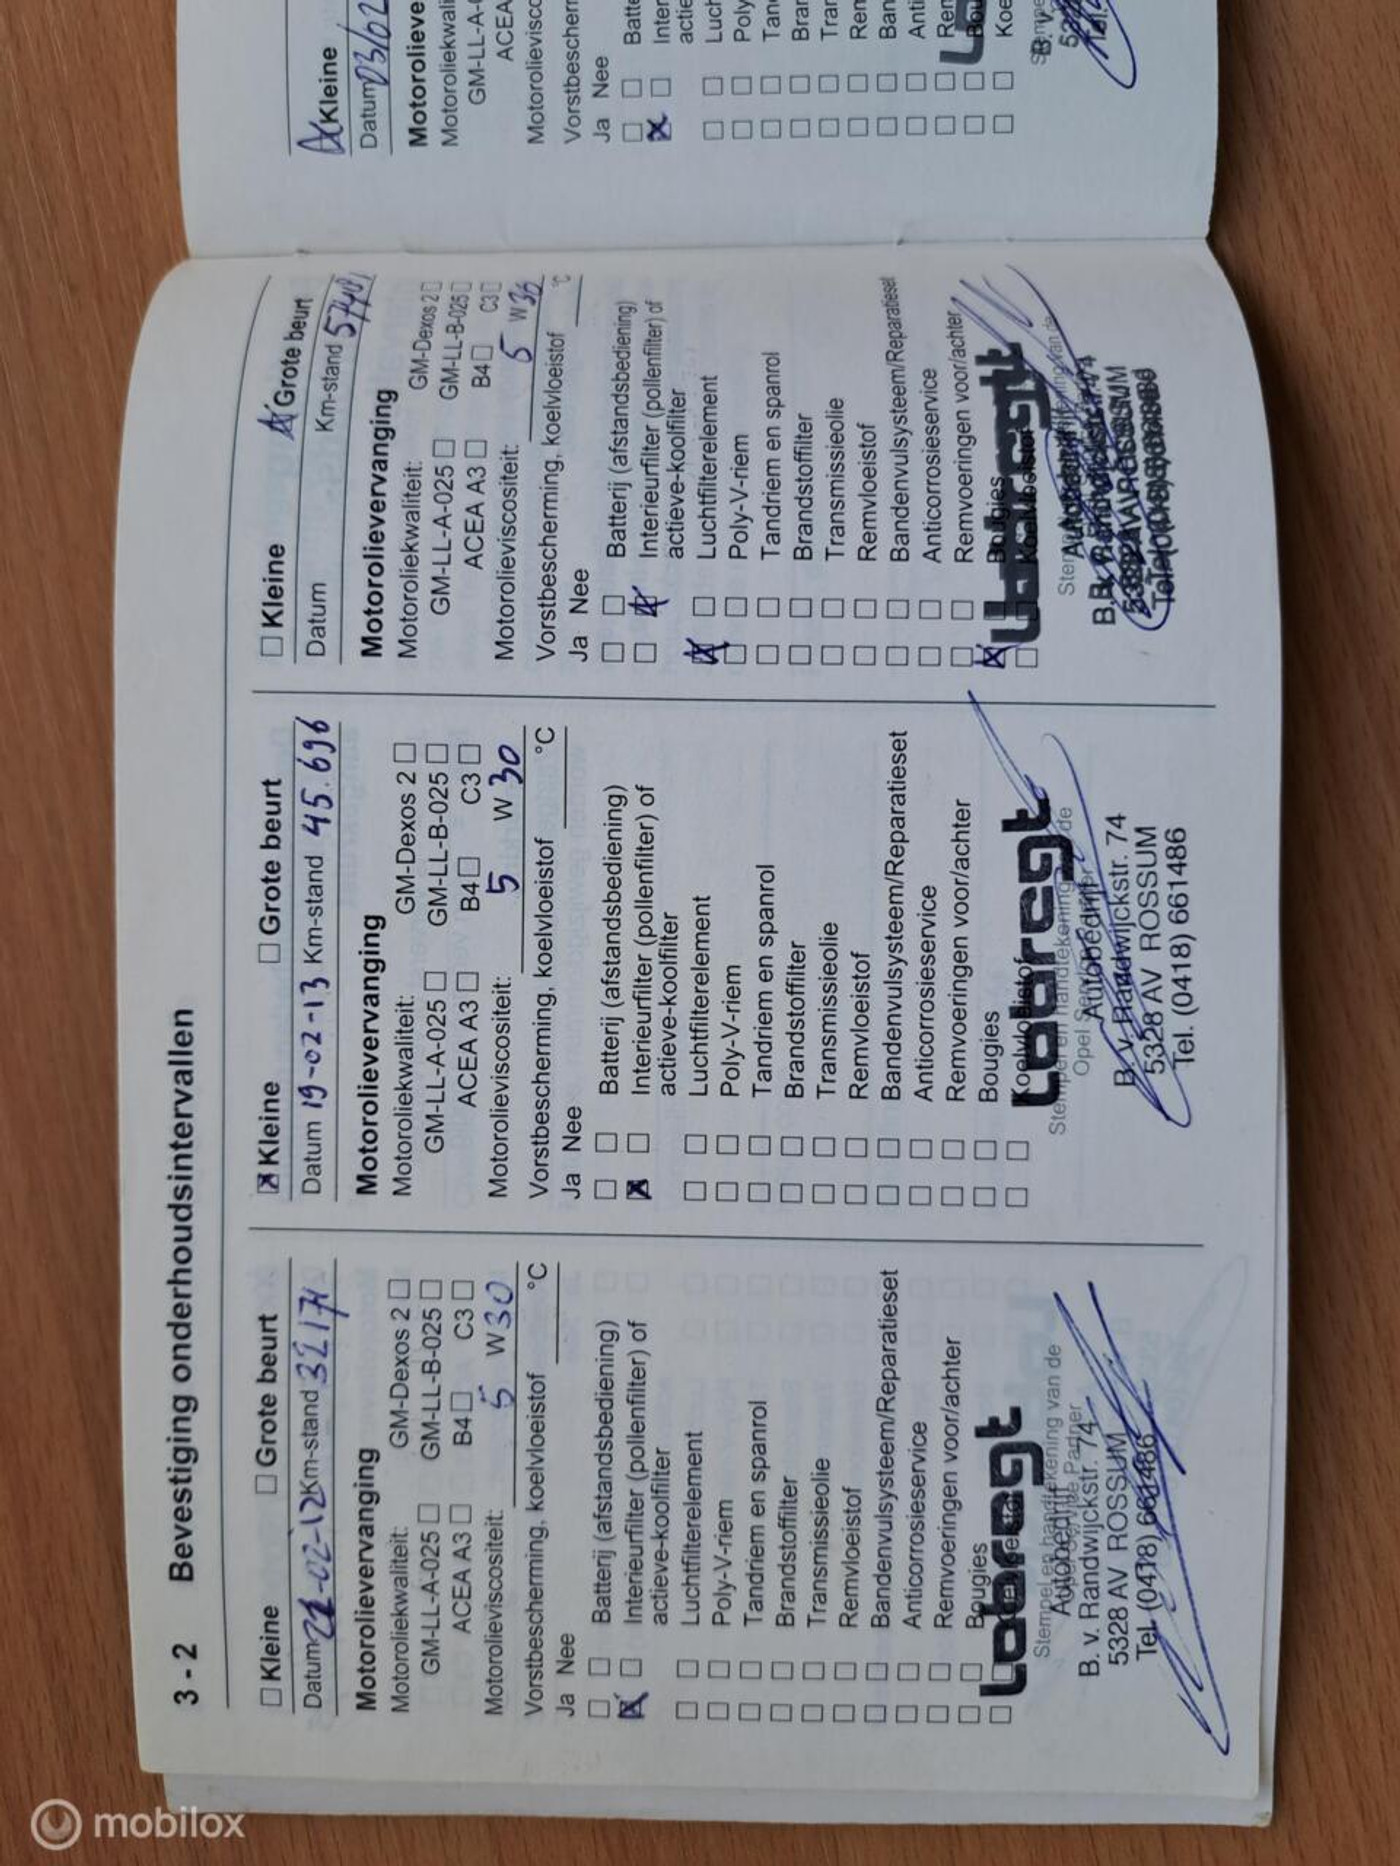 3 - 2 Bevestiging onderhoudsintervallen
Kleine Grote beurt
Datum 21-02-12 Km-stand 32171
Motorolievervanging
Motoroliekwaliteit: GM-Dexos 2
GM-LL-A-025 GM-LL-B-025
ACEA A3 B4 C3
Motorolieviscositeit: 5 W 30
Vorstbescherming, koelvloeistof °C
Ja Nee
Batterij (afstandsbediening)
Interieurfilter (pollenfilter) of
actieve-koolfilter
Luchtfilterelement
Poly-V-riem
Tandriem en spanrol
Brandstoffilter
Transmissieolie
Remvloeistof
Bandenvulsysteem/Reparatieset
Anticorrosieservice
Remvoeringen voor/achter
Bougies
Labregt
Stempel en handtekening van de
Autobedrijf
B. v. Randwijckstr. 74
5328 AV ROSSUM
Tel. (0418) 661486
Kleine Grote beurt
Datum 19-02-13 Km-stand 45.696
Motorolievervanging
Motoroliekwaliteit: GM-Dexos 2
GM-LL-A-025 GM-LL-B-025
ACEA A3 B4 C3
Motorolieviscositeit: 5 W 30
Vorstbescherming, koelvloeistof °C
Ja Nee
Batterij (afstandsbediening)
Interieurfilter (pollenfilter) of
actieve-koolfilter
Luchtfilterelement
Poly-V-riem
Tandriem en spanrol
Brandstoffilter
Transmissieolie
Remvloeistof
Bandenvulsysteem/Reparatieset
Anticorrosieservice
Remvoeringen voor/achter
Bougies
Koelvloeistof
Labregt
Stempel en handtekening van de
Opel Service
Autobedrijf
B. v. Randwijckstr. 74
5328 AV ROSSUM
Tel. (0418) 661486
Kleine Grote beurt
Datum Km-stand
Motorolievervanging
Motoroliekwaliteit: GM-Dexos 2
GM-LL-A-025 GM-LL-B-025
ACEA A3 B4 C3
Motorolieviscositeit: 5 W 30
Vorstbescherming, koelvloeistof °C
Ja Nee
Batterij (afstandsbediening)
Interieurfilter (pollenfilter) of
actieve-koolfilter
Luchtfilterelement
Poly-V-riem
Tandriem en spanrol
Brandstoffilter
Transmissieolie
Remvloeistof
Bandenvulsysteem/Reparatieset
Anticorrosieservice
Remvoeringen voor/achter
Bougies
Labregt
Kleine
Datum
Motorolieve
Motoroliekwali
GM-LL-A-0
ACEA
Motorolievisco
Vorstbescherm
Ja Nee
Batte
Inter
actie
Luch
Poly
Tan
Bran
Tran
Ren
Ban
Anti
Ren
Bou
Koe
mobilox